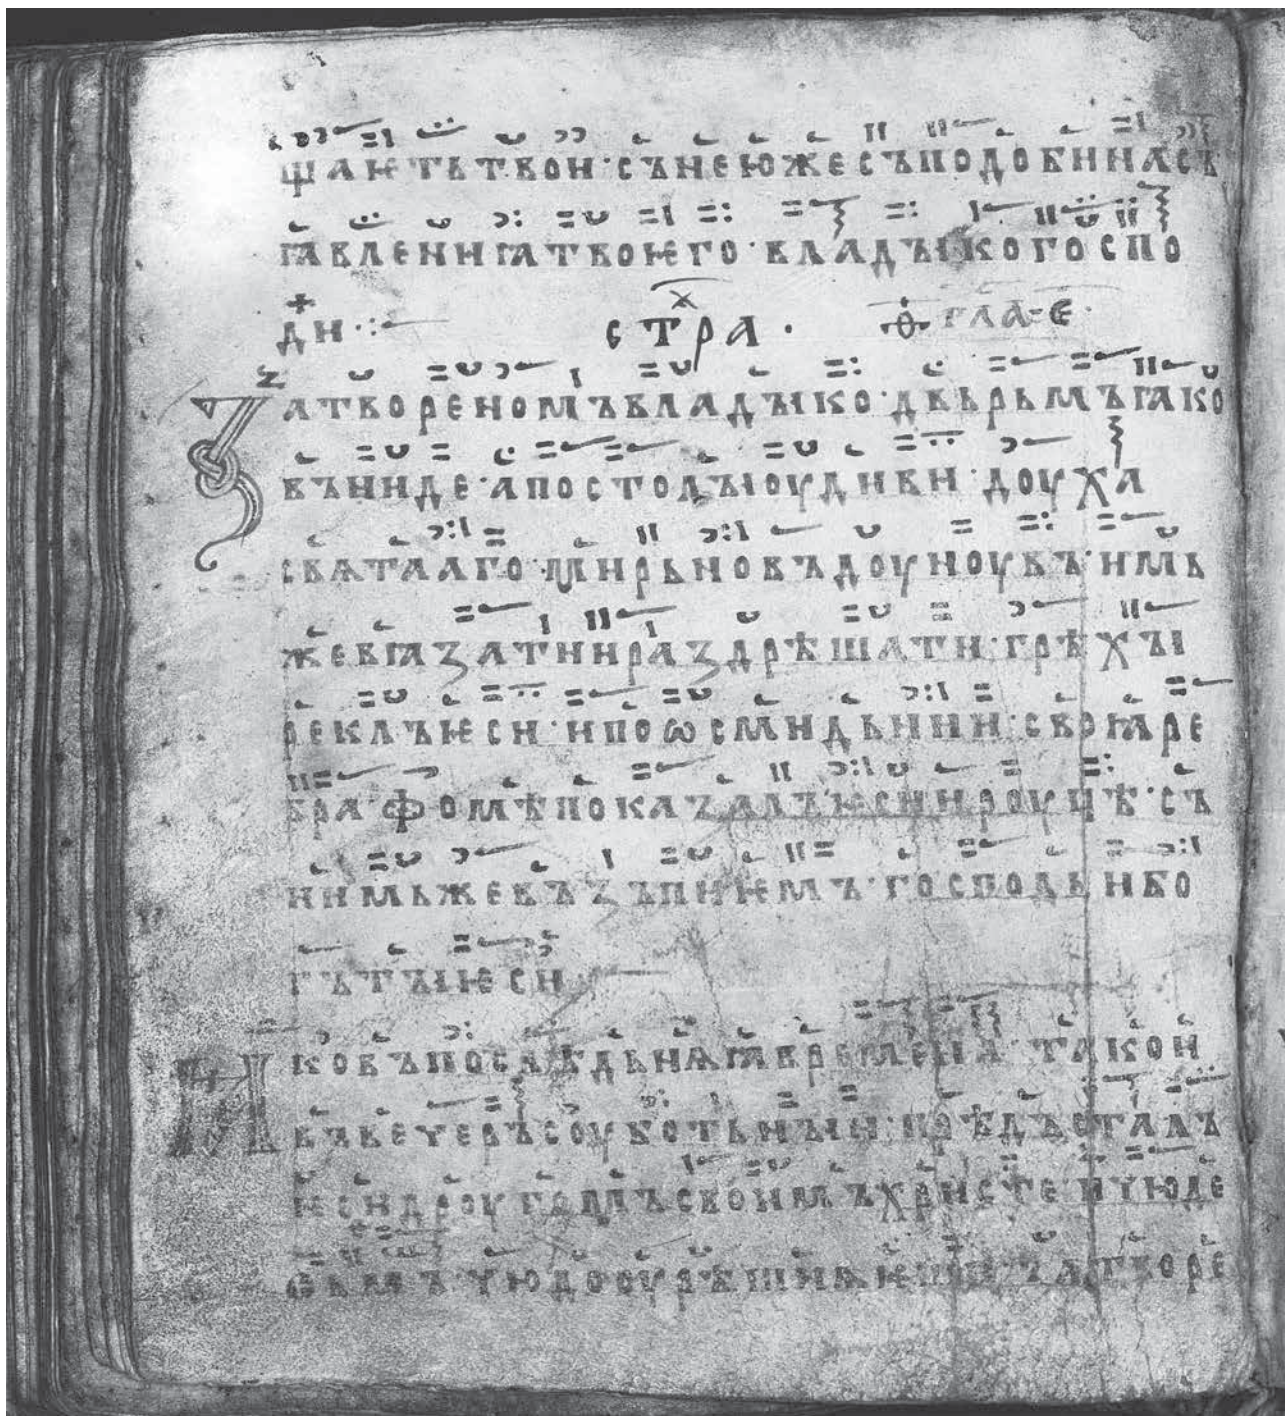 щаѥть твои · съ неюже съподоби на съ
ꙗвлениꙗ твоѥго · владыко госпо
ди ·:
стра · глас · е ·
Затвореномъ владыко · двьрьмъ ꙗко
въниде · апостолы оудиви · доуха
свѧтааго · мирьно въдоуноувъ · имь
же вꙗзати и раздрѣшати · грѣхы
реклъ ѥси · и по ѡсми дьнии · своꙗ ре
бра · фомѣ показалъ ѥси и роуцѣ · съ
нимьже възъпиѥмъ · господь и бо
гъ ты ѥси
ко въ послѣдьнѧꙗ времена · тако и
въ вечеръ соуботьныи · прѣдъсталъ
ѥси дроугомъ своимъ христе и чюде
съмь чюдо оувѣ затворе